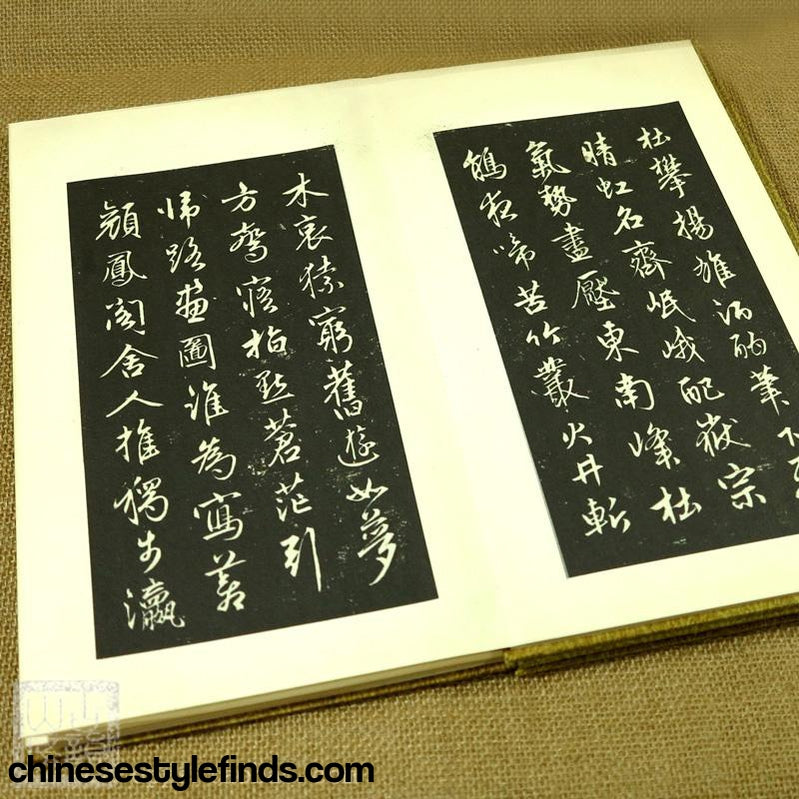 杜攀揚雄酒酌筆下
晴虹名齊岷峨配嶽宗
氣勢盡壓東南峰杜
鵑夜啼苦竹叢火井斬
木哀猿窮舊遊如夢
方驚寤指點蒼茫引
歸路畫圖誰為寫蒼
顏鳳閣舍人推獨步瀛
chinesestylefinds.com